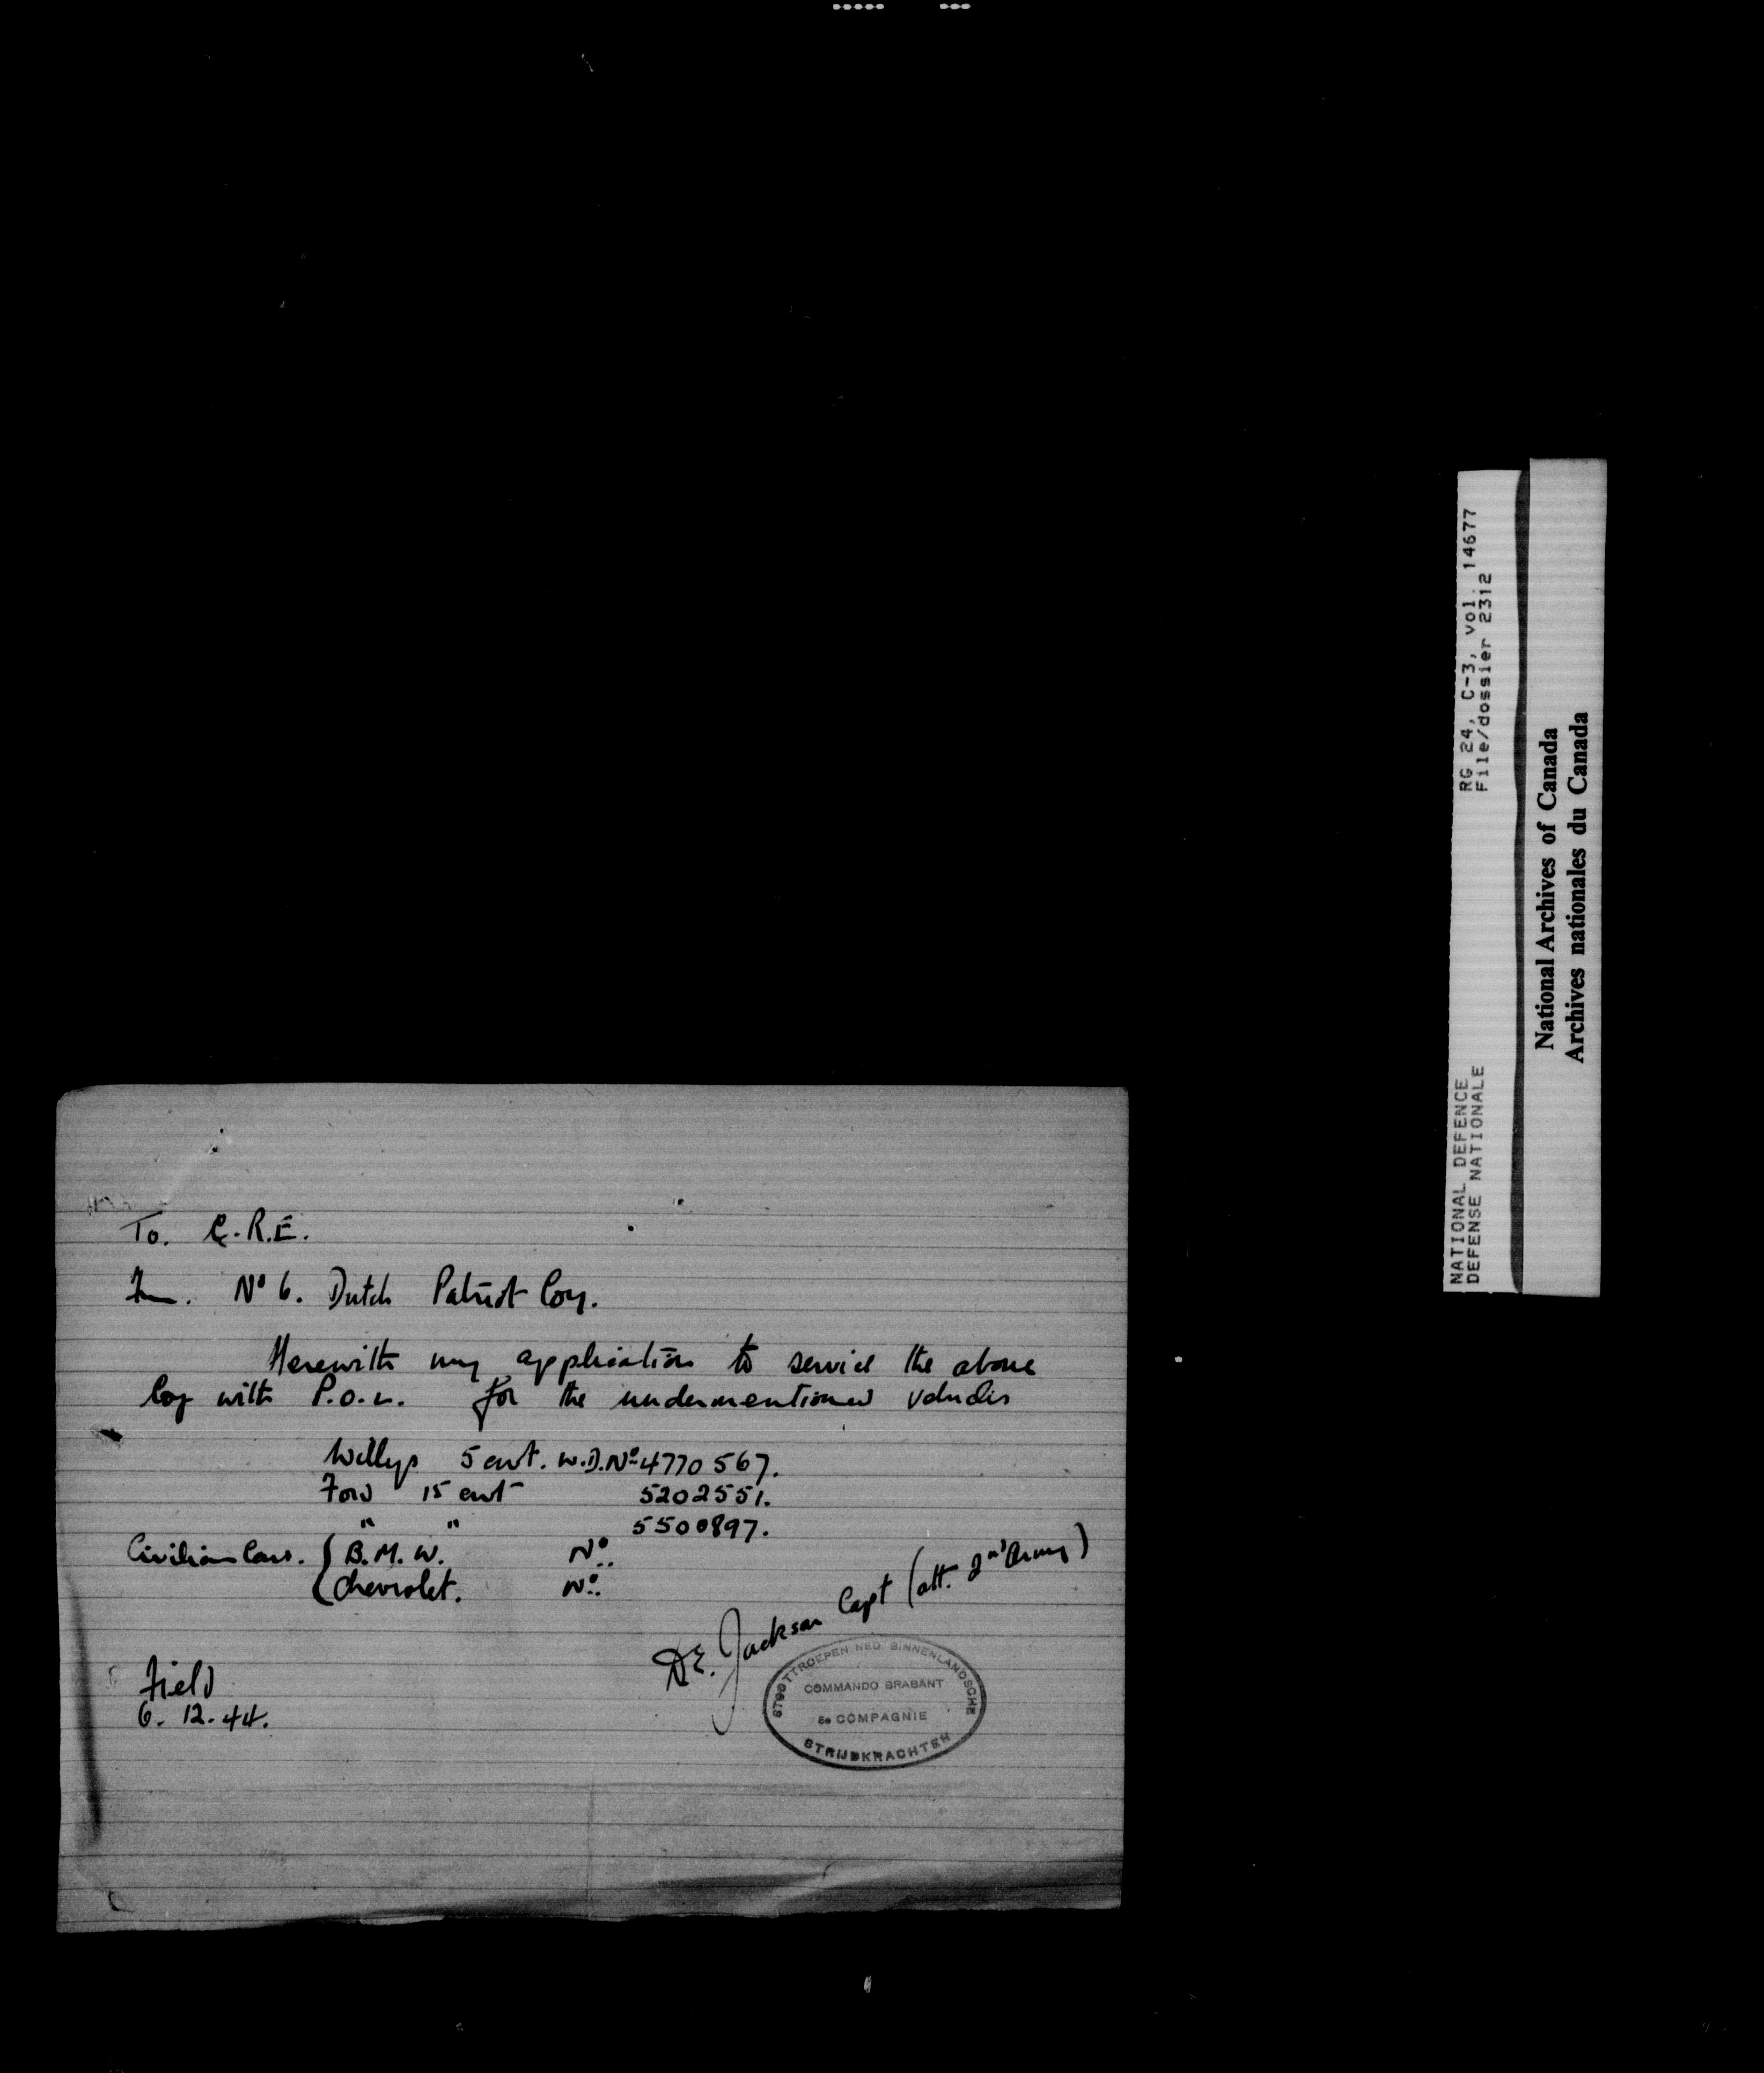 To. C.R.E.
Fm. Nº 6. Dutch Patriot Coy.
Herewith my application to service the above
Coy with P.O.L. for the undermentioned vehicles
Willys 5 cwt. W.D. Nº 4770567.
Ford 15 cwt 5202551.
" " 5500897.
Civilian Cars. { B.M.W. Nº
Chevrolet. Nº
D.E. Jackson Capt (att. 2nd Army)
Field
6. 12. 44.
STOOTTROEPEN NED. BINNENLANDSCHE
COMMANDO BRABANT
6e COMPAGNIE
STRIJDKRACHTEN
RG 24, C-3, vol. 14677
File/dossier 2312
NATIONAL DEFENCE
DEFENSE NATIONALE
National Archives of Canada
Archives nationales du Canada